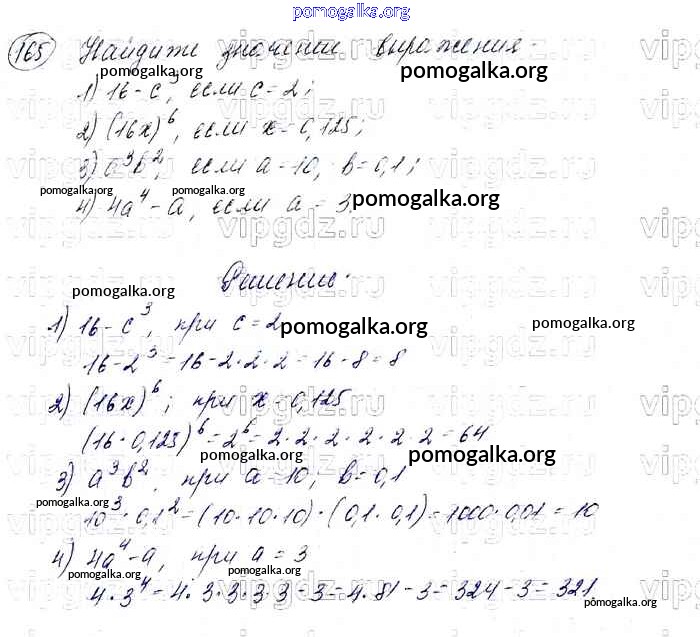 pomogalka.org
165 Найдите значение выражения.
pomogalka.org pomogalka.org
1) 16 - c³, если c = 2;
2) (16x)⁶, если x = 0,125;
3) a³b², если a = 10, b = 0,1;
pomogalka.org pomogalka.org pomogalka.org
4) 4a⁴ - a, если a = 3.
vipgdz.ru
Решение.
pomogalka.org
1) 16 - c³, при c = 2
pomogalka.org pomogalka.org
16 - 2³ = 16 - 2·2·2 = 16 - 8 = 8
2) (16x)⁶; при x = 0,125
(16·0,125)⁶ = 2⁶ = 2·2·2·2·2·2 = 64
pomogalka.org pomogalka.org
3) a³b², при a = 10, b = 0,1
pomogalka.org
10³·0,1² = (10·10·10)·(0,1·0,1) = 1000·0,01 = 10
4) 4a⁴ - a, при a = 3
pomogalka.org pomogalka.org pomogalka.org
4·3⁴ - 4·3·3·3·3 - 3 = 4·81 - 3 = 324 - 3 = 321
pomogalka.org